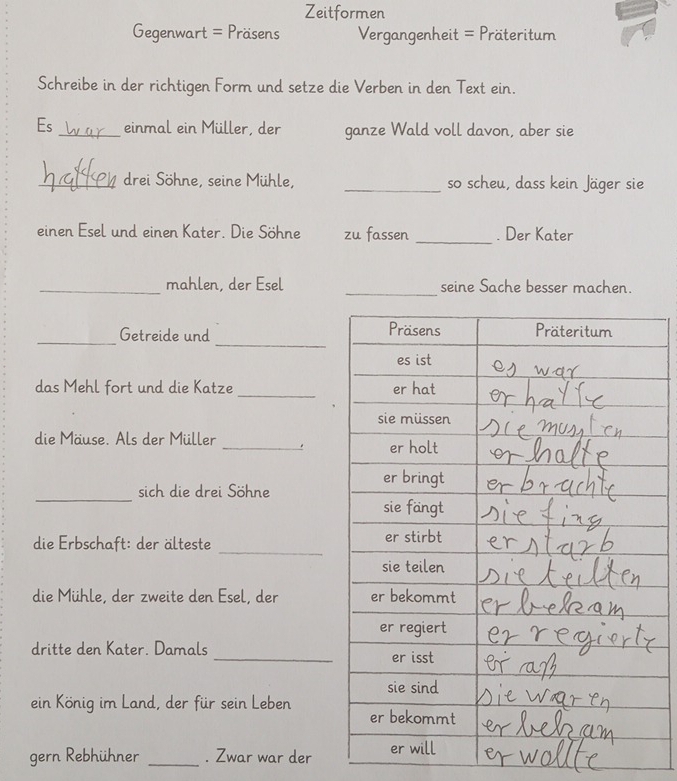 Zeitformen
Gegenwart = Präsens Vergangenheit = Präteritum
Schreibe in der richtigen Form und setze die Verben in den Text ein.
Es war einmal ein Müller, der
hatten drei Söhne, seine Mühle,
einen Esel und einen Kater. Die Söhne
____ mahlen, der Esel
____ Getreide und ____
das Mehl fort und die Katze ____
die Mäuse. Als der Müller ____,
____ sich die drei Söhne
die Erbschaft: der älteste ____
die Mühle, der zweite den Esel, der
dritte den Kater. Damals ____
ein König im Land, der für sein Leben
gern Rebhühner ____. Zwar war der
ganze Wald voll davon, aber sie
____ so scheu, dass kein Jäger sie
zu fassen ____. Der Kater
____ seine Sache besser machen.
Präsens Präteritum
es ist es war
er hat er hatte
sie müssen sie mussten
er holt er halte
er bringt er brachte
sie fängt sie fing
er stirbt er starb
sie teilen sie teilten
er bekommt er bekam
er regiert er regierte
er isst er aß
sie sind sie waren
er bekommt er bekam
er will er wollte